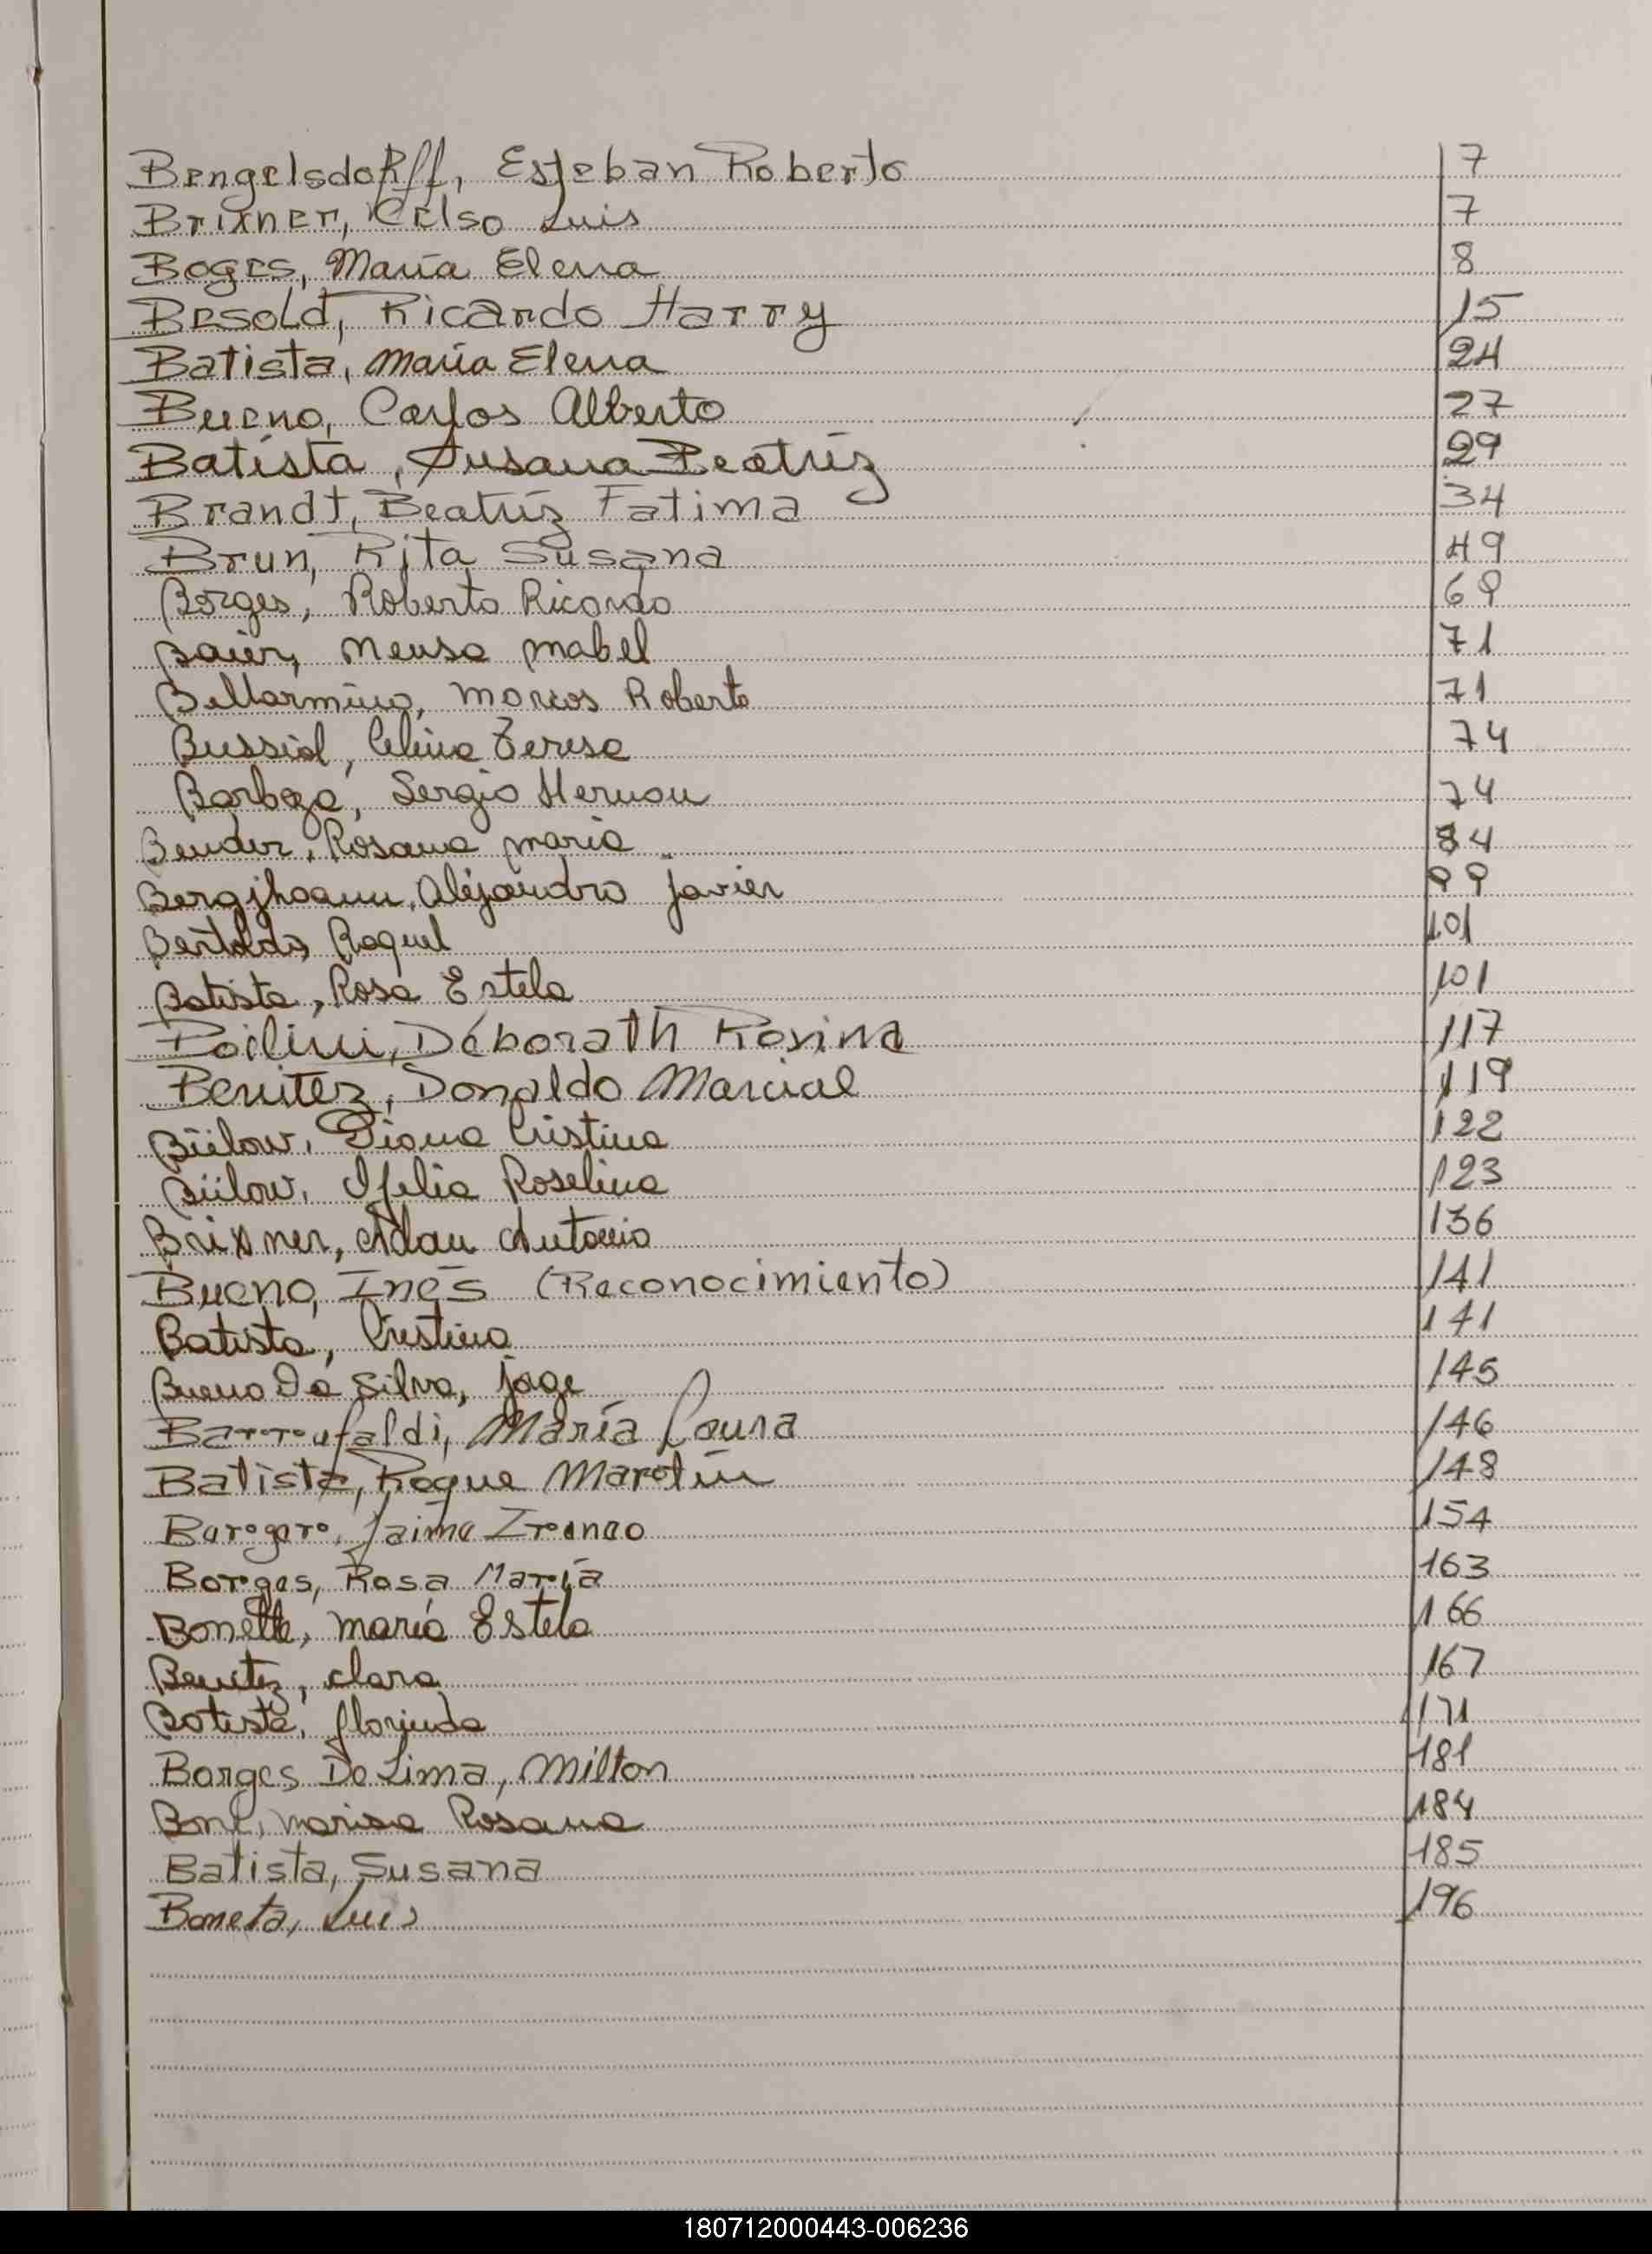 Bengelsdorff, Esteban Roberto 7
Brixner, Celso Luis 7
Boges, María Elena 8
Besold, Ricardo Harry 15
Batista, María Elena 24
Bueno, Carlos Alberto 27
Batista, Susana Beatríz 29
Brandt, Beatríz Fatima 34
Brun, Rita Susana 49
Borges, Roberto Ricardo 69
Baier, Neusa Mabel 71
Bellarmino, Marcos Roberto 71
Bussiol, Celina Teresa 74
Barboza, Sergio Hernan 74
Bender, Rosana Maria 84
Bergjhoann, Alejandro Javier 99
Bertoldo, Raquel 101
Batista, Rosa Estela 101
Déborath Rosina 117
Benitez, Donaldo Marcial 119
Bülow, Diana Cristina 122
Bülow, Ofelia Roselina 123
Brixner, Adan Antonio 136
Bueno, Inés (Reconocimiento) 141
Batista, Cristina 141
Bueno Da Silva, Jorge 145
Barroufaldi, María Laura 146
Batista, Roque Martín 148
Jaime 154
Borges, Rosa María 163
Bonetti, María Estela 166
Benitez, Clara 167
Batista, Florinda 171
Borges De Lima, Milton 181
Marisa Rosana 184
Batista, Susana 185
Boneta, Luis 196
180712000443-006236